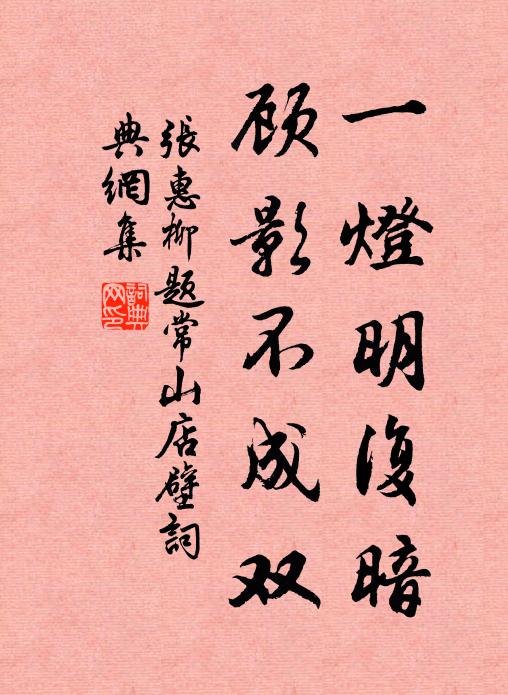 一燈明復暗
顾影不成双
張惠柳題常山店壁詞
典網集
詞典
网印